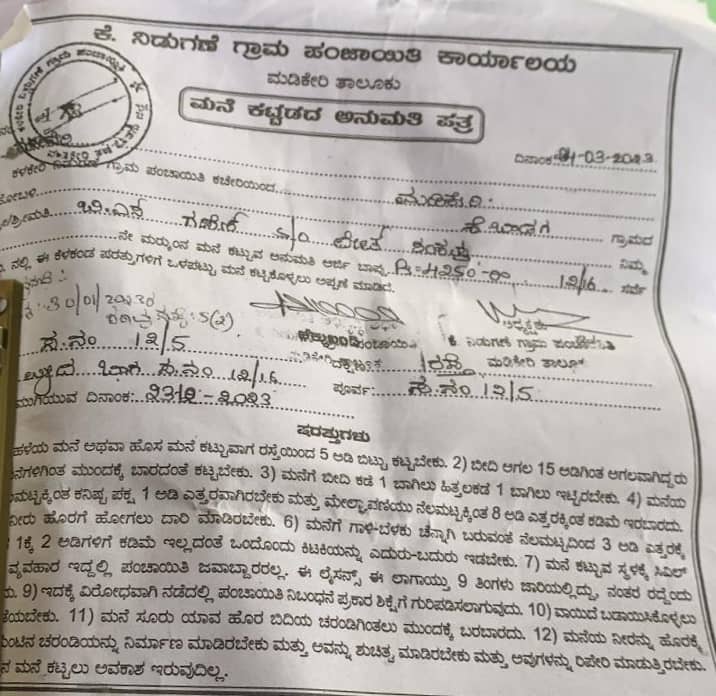 ಕೆ. ನಿಡುಗಣೆ ಗ್ರಾಮ ಪಂಚಾಯಿತಿ ಕಾರ್ಯಾಲಯ
ಮಡಿಕೇರಿ ತಾಲೂಕು
ಮನೆ ಕಟ್ಟಡದ ಅನುಮತಿ ಪತ್ರ
ದಿನಾಂಕ 31-03-2023
ಗ್ರಾಮ ಪಂಚಾಯಿತಿ ಕಚೇರಿಯಿಂದ
ಮಡಿಕೇರಿ
ಬಿ.ಎನ್ S/O ಲೇಟ್ ಗ್ರಾಮದ
ನೇ ಮದ್ಯಂನ ಮನೆ ಕಟ್ಟುವ ಅನುಮತಿ ಅರ್ಜಿ ಬಾಪ್ತು Rs=4250-00 ನಿಮ್ಮ
ನಲ್ಲಿ ಈ ಕೆಳಕಂಡ ಪರತ್ತುಗಳಿಗೆ ಒಳಪಟ್ಟು ಮನೆ ಕಟ್ಟಿಕೊಳ್ಳಲು ಅಪ್ಪಣೆ ಮಾಡಿದೆ. 12/16 ಸರ್ವೆ
30/01/2023
5(2)
ಅಧ್ಯಕ್ಷರು
ಕೆ. ನಿಡುಗಣೆ ಗ್ರಾಮ ಪಂಚಾಯಿತಿ
ಸ.ನಂ 12/5
ರಸ್ತೆ ಮಡಿಕೇರಿ ತಾಲ್ಲೂಕ್
ಭಾಗ ಸ.ನಂ 12/16 ಪೂರ್ವ: ಸ.ನಂ 12/5
ಮುಗಿಯುವ ದಿನಾಂಕ:
ಷರತ್ತುಗಳು
ಹಳೆಯ ಮನೆ ಅಥವಾ ಹೊಸ ಮನೆ ಕಟ್ಟುವಾಗ ರಸ್ತೆಯಿಂದ 5 ಅಡಿ ಬಿಟ್ಟು ಕಟ್ಟಬೇಕು. 2) ಬೀದಿ ಅಗಲ 15 ಅಡಿಗಿಂತ ಅಗಲವಾಗಿದ್ದರು
ಮುಂದಕ್ಕೆ ಬಾರದಂತೆ ಕಟ್ಟಬೇಕು. 3) ಮನೆಗೆ ಬೀದಿ ಕಡೆ 1 ಬಾಗಿಲು ಹಿತ್ತಲಕಡೆ 1 ಬಾಗಿಲು ಇಟ್ಟಿರಬೇಕು. 4) ಮನೆಯ
ಕನಿಷ್ಟ ಪಕ್ಷ 1 ಅಡಿ ಎತ್ತರವಾಗಿರಬೇಕು ಮತ್ತು ಮೇಲ್ಚಾವಣಿಯು ನೆಲಮಟ್ಟಕ್ಕಿಂತ 8 ಅಡಿ ಎತ್ತರಕ್ಕಿಂತ ಕಡಿಮೆ ಇರಬಾರದು.
ನೀರು ಹೊರಗೆ ಹೋಗಲು ದಾರಿ ಮಾಡಿರಬೇಕು. 6) ಮನೆಗೆ ಗಾಳಿ-ಬೆಳಕು ಚೆನ್ನಾಗಿ ಬರುವಂತೆ ನೆಲಮಟ್ಟದಿಂದ 3 ಅಡಿ ಎತ್ತರಕ್ಕೆ
1ಕ್ಕೆ 2 ಅಡಿಗಳಿಗೆ ಕಡಿಮೆ ಇಲ್ಲದಂತೆ ಒಂದೊಂದು ಕಿಟಕಿಯನ್ನು ಎದುರು-ಬದುರು ಇಡಬೇಕು. 7) ಮನೆ ಕಟ್ಟುವ ಸ್ಥಳಕ್ಕೆ ಸಿವಿಲ್
ವ್ಯವಹಾರ ಇದ್ದಲ್ಲಿ ಪಂಚಾಯಿತಿ ಜವಾಬ್ದಾರರಲ್ಲ. ಈ ಲೈಸನ್ಸ್ ಈ ಲಾಗಾಯ್ತು 9 ತಿಂಗಳು ಜಾರಿಯಲ್ಲಿದ್ದು, ನಂತರ ರದ್ದೆಂದು
9) ಇದಕ್ಕೆ ವಿರೋಧವಾಗಿ ನಡೆದಲ್ಲಿ ಪಂಚಾಯಿತಿ ನಿಬಂಧನೆ ಪ್ರಕಾರ ಶಿಕ್ಷೆಗೆ ಗುರಿಪಡಿಸಲಾಗುವುದು. 10) ವಾಯಿದೆ ಬಡಾಯಿಸಿಕೊಳ್ಳಲು
11) ಮನೆ ಸೂರು ಯಾವ ಹೊರ ಬಿದಿಯ ಚರಂಡಿಗಿಂತಲು ಮುಂದಕ್ಕೆ ಬರಬಾರದು. 12) ಮನೆಯ ನೀರನ್ನು ಹೊರಕ್ಕೆ
ಚರಂಡಿಯನ್ನು ನಿರ್ಮಾಣ ಮಾಡಿರಬೇಕು ಮತ್ತು ಅವನ್ನು ಶುಚಿತ್ವ ಮಾಡಿರಬೇಕು ಮತ್ತು ಅವುಗಳನ್ನು ರಿಪೇರಿ ಮಾಡುತ್ತಿರಬೇಕು.
ಮನೆ ಕಟ್ಟಲು ಅವಕಾಶ ಇರುವುದಿಲ್ಲ.